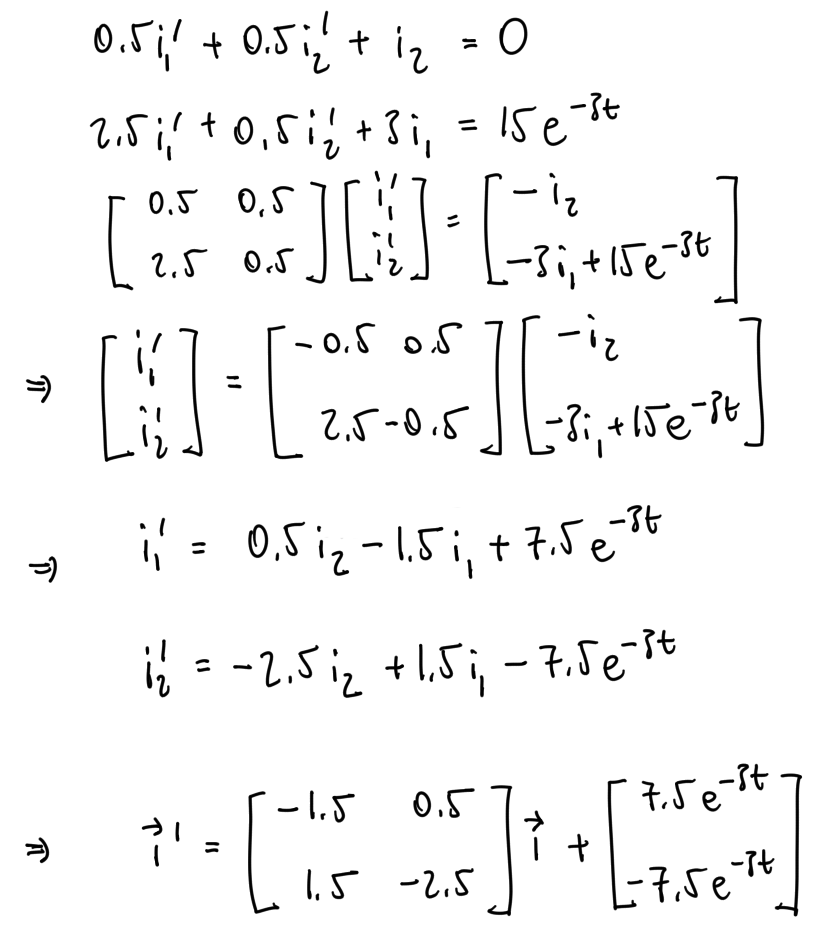 0.5i₁' + 0.5i₂' + i₂ = 0
2.5i₁' + 0.5i₂' + 3i₁ = 15e^{-3t}
[0.5 0.5; 2.5 0.5] [i₁'; i₂'] = [-i₂; -3i₁+15e^{-3t}]
⇒ [i₁'; i₂'] = [-0.5 0.5; 2.5 -0.5] [-i₂; -3i₁+15e^{-3t}]
⇒ i₁' = 0.5i₂ - 1.5i₁ + 7.5e^{-3t}
i₂' = -2.5i₂ + 1.5i₁ - 7.5e^{-3t}
⇒ i⃗' = [-1.5 0.5; 1.5 -2.5] i⃗ + [7.5e^{-3t}; -7.5e^{-3t}]